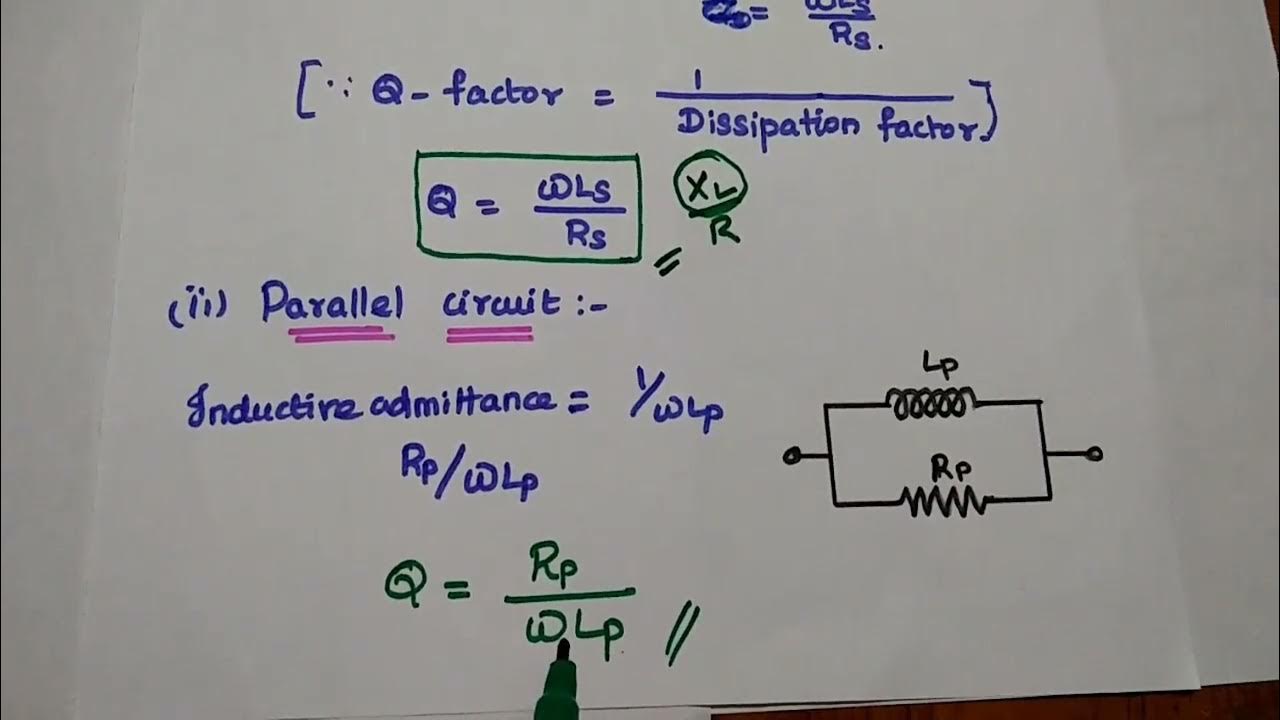 = ωLs
Rs.
[∵ Q-factor = 1
Dissipation factor]
Q = ωLs
Rs
XL
R
=
(ii) Parallel circuit :-
Inductive admittance = 1/ωLp
Rp/ωLp
Lp
Rp
Q = Rp
ωLp //